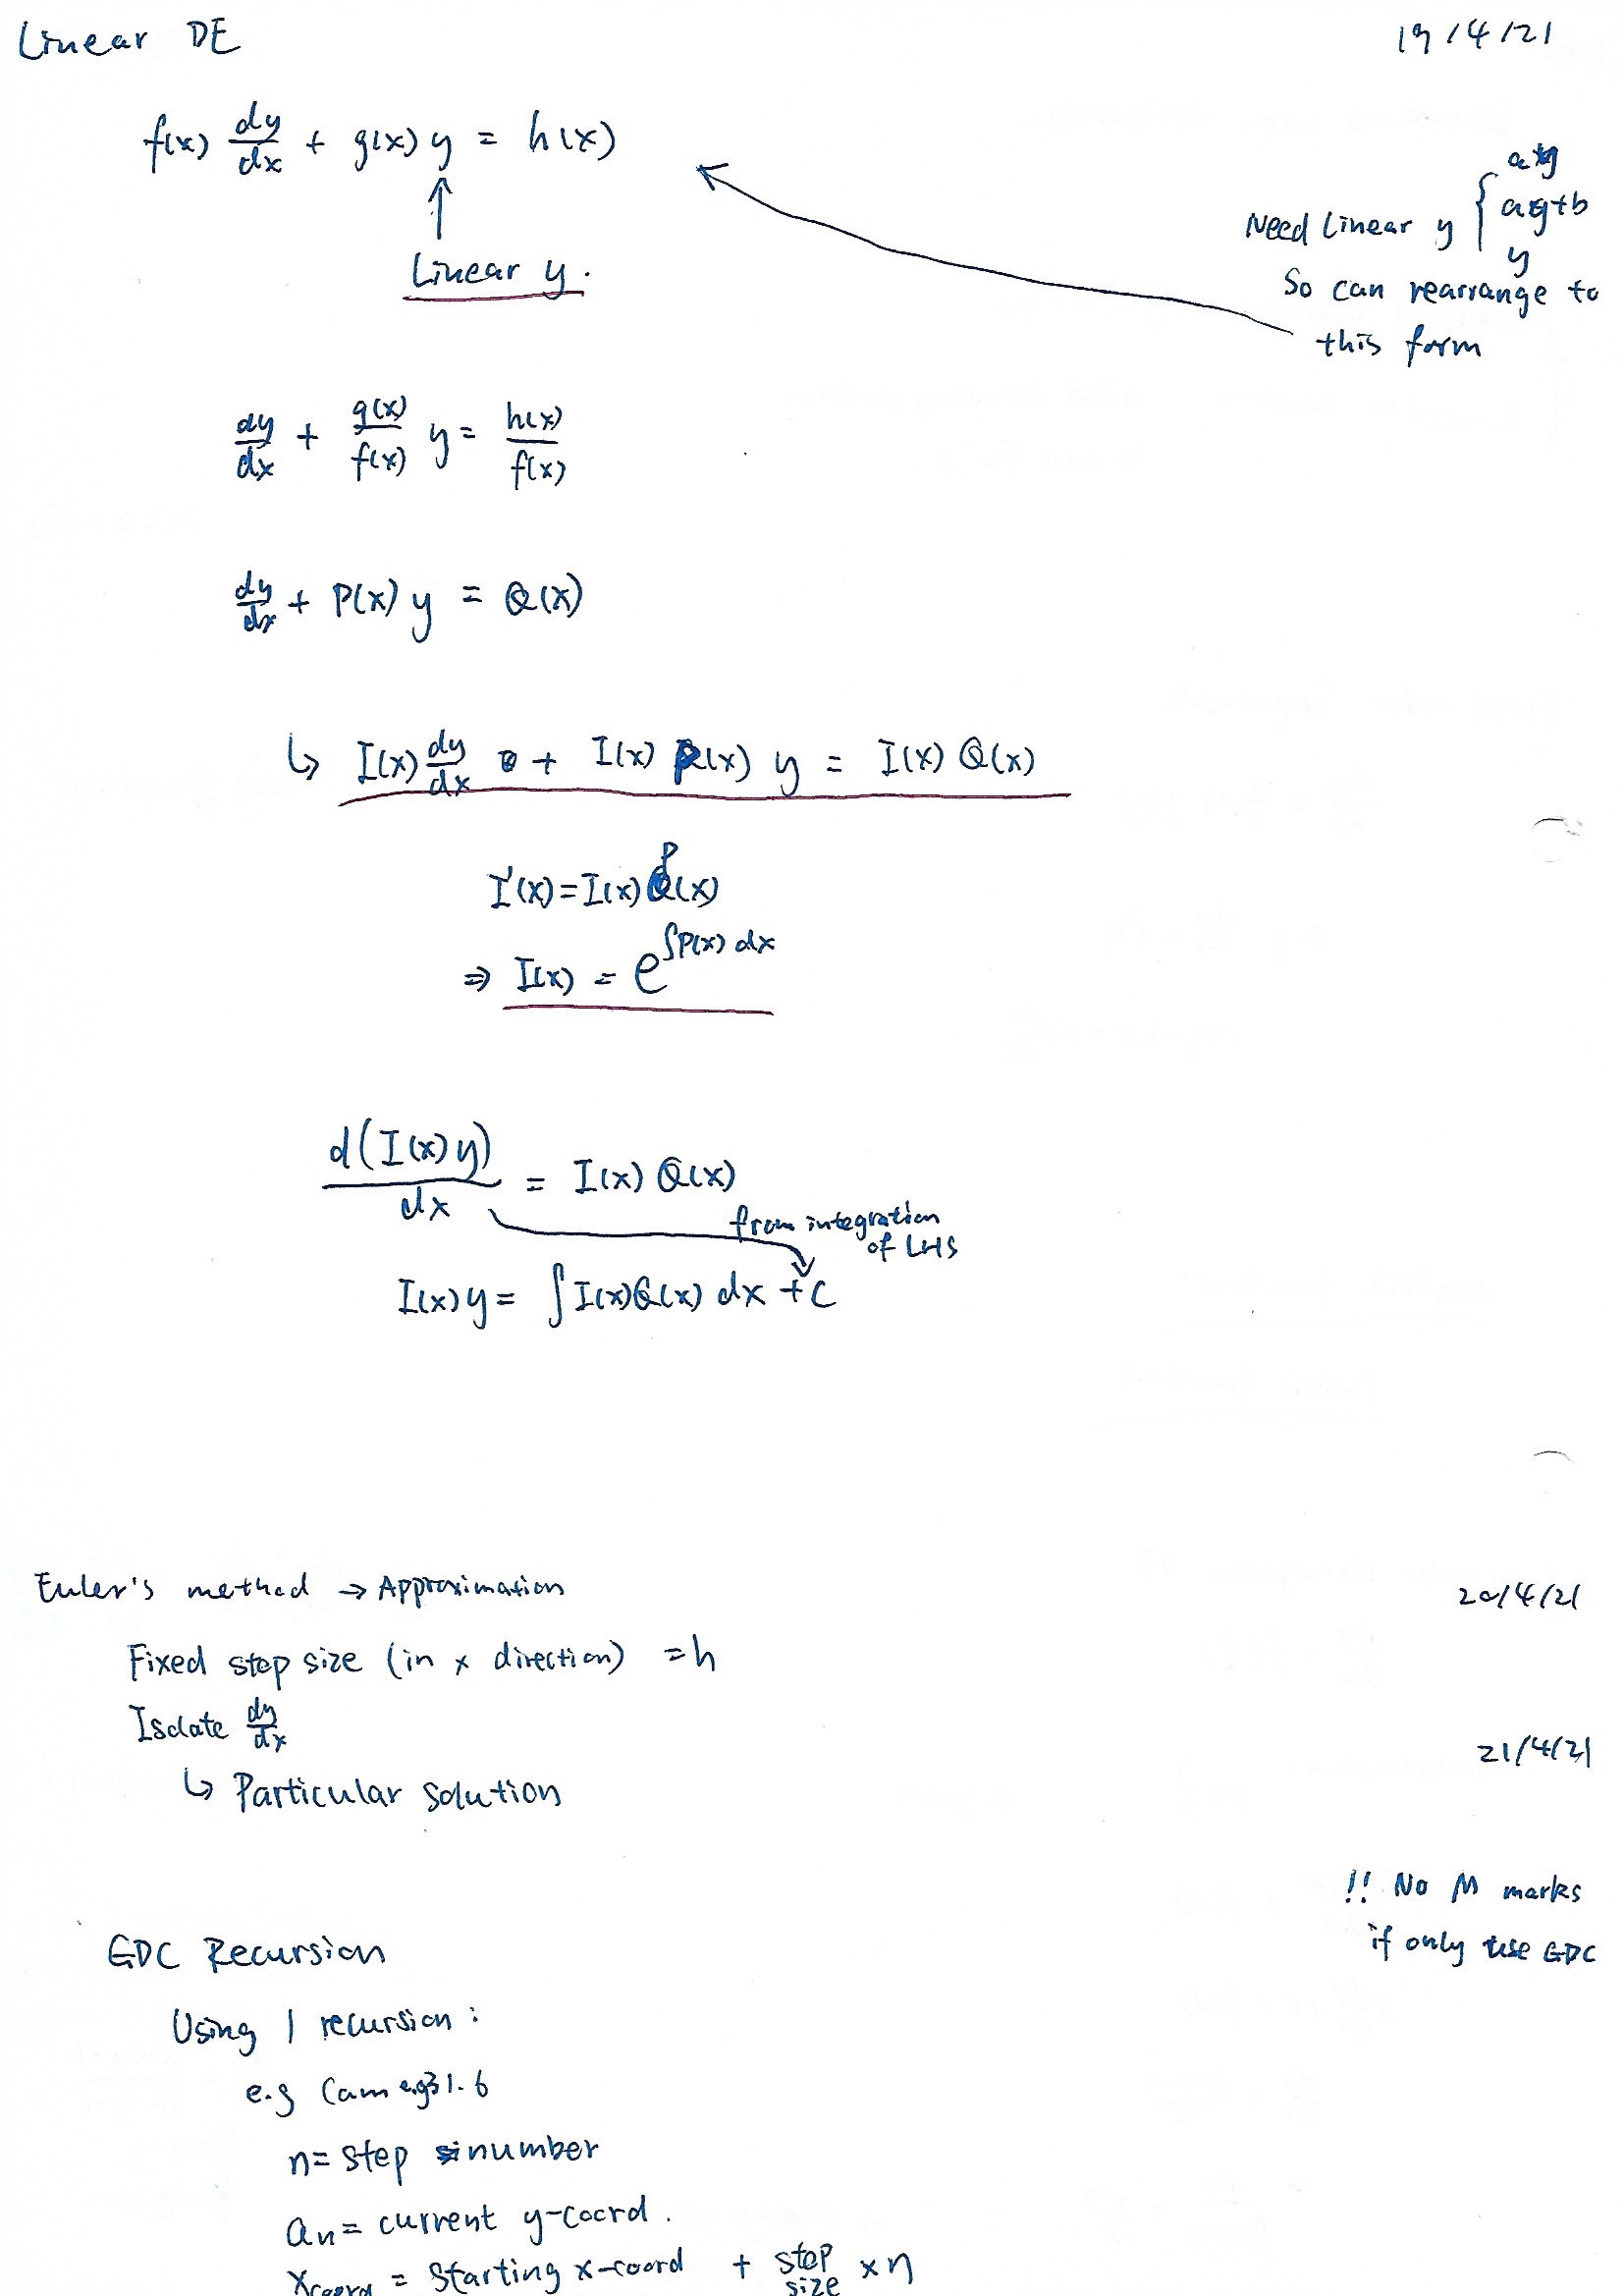 Linear DE 19/4/21
f(x) dy/dx + g(x) y = h(x)
Linear y.
Need Linear y { ay
ay+b
y
So can rearrange to
this form
dy/dx + g(x)/f(x) y = h(x)/f(x)
dy/dx + P(x) y = Q(x)
↳ I(x) dy/dx + I(x) P(x) y = I(x) Q(x)
I'(x) = I(x) P(x)
⇒ I(x) = e^∫P(x) dx
d(I(x) y)/dx = I(x) Q(x)
from integration
of LHS
I(x) y = ∫ I(x)Q(x) dx + C
Euler's method → Approximation 20/4/21
Fixed step size (in x direction) = h
Isolate dy/dx
21/4/21
↳ Particular solution
!! No M marks
if only use GDC
GDC Recursion
Using 1 recursion :
e.g Cam e.g31.6
n= step number
an= current y-coord.
xcoord = starting x-coord + step size × n